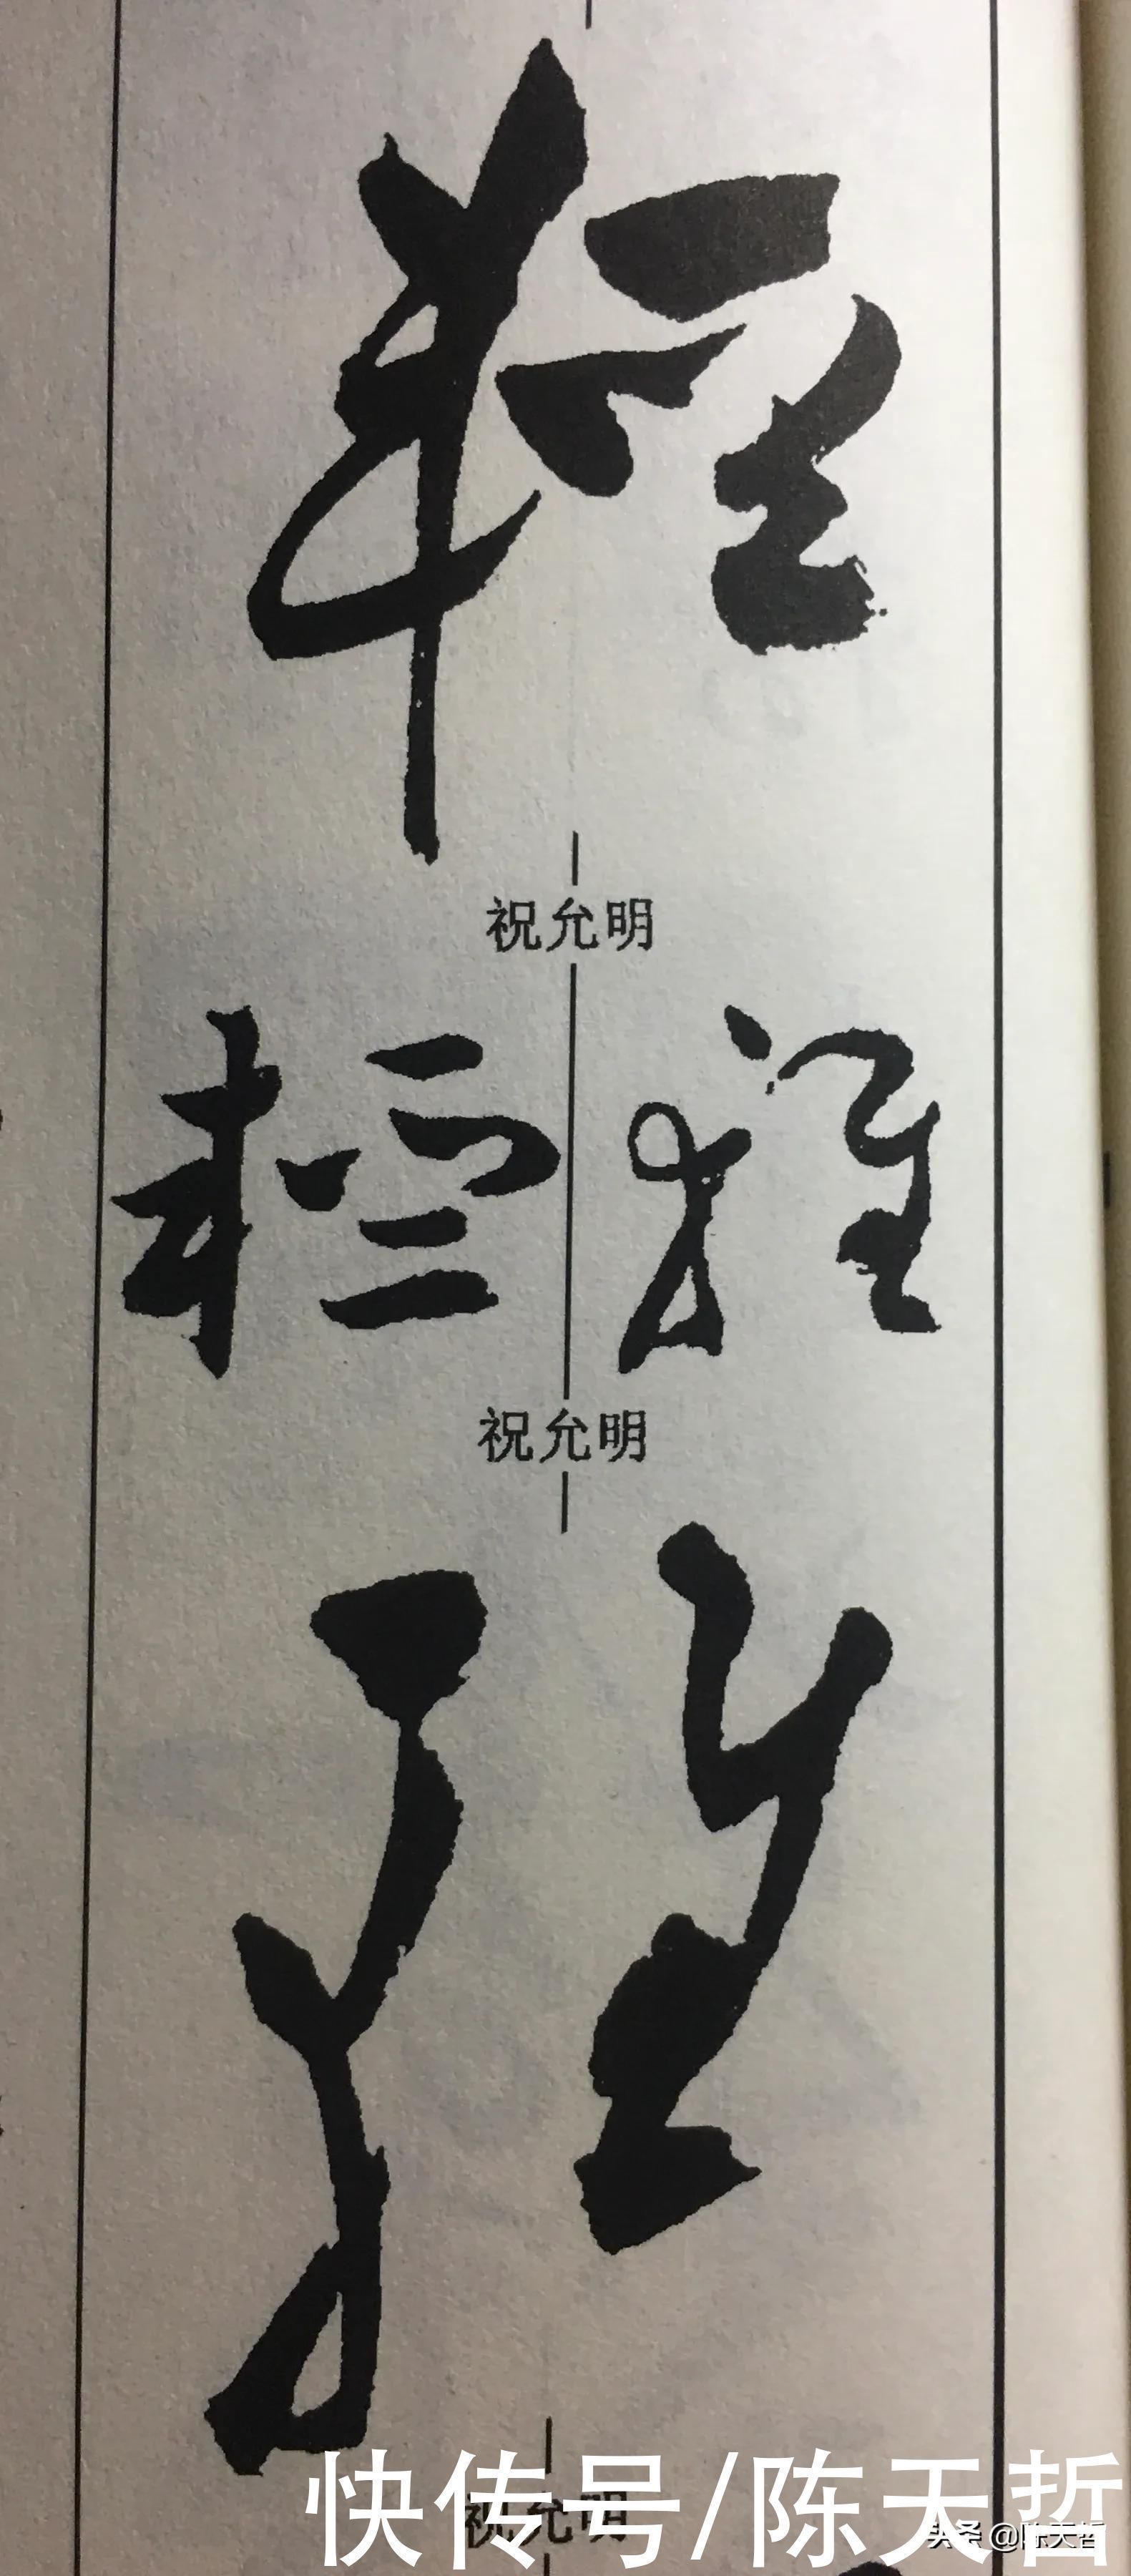 輕
祝允明
輕 輕
祝允明
輕
祝允明
快传号/陈天哲
头条 @陈天哲